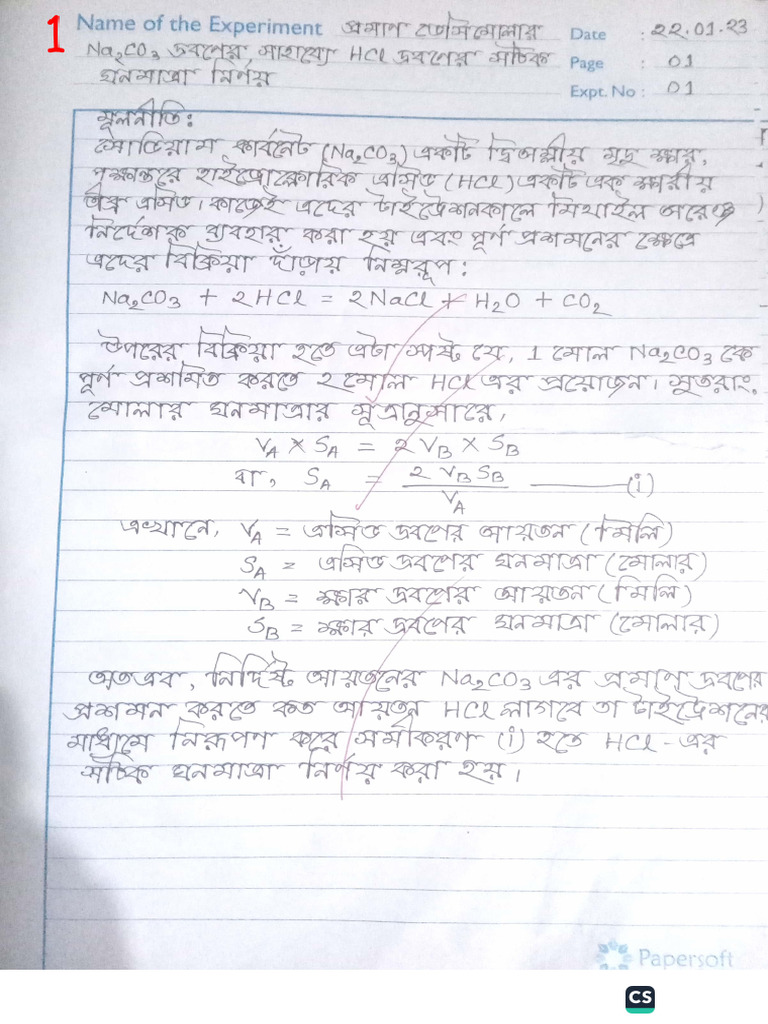 1
Name of the Experiment প্রমাণ ডেসিমোলার
Date : 22.01.23
Na2CO3 দ্রবণের সাহায্যে HCl দ্রবণের সঠিক
Page : 01
ঘনমাত্রা নির্ণয়
Expt. No : 01
মূলনীতি:
সোডিয়াম কার্বনেট (Na2CO3) একটি দ্বিঅম্লীয় মৃদু ক্ষার,
পক্ষান্তরে হাইড্রোক্লোরিক এসিড (HCl) একটি এক ক্ষারীয়
তীব্র এসিড। কাজেই এদের টাইট্রেশনকালে মিথাইল অরেঞ্জ
নির্দেশক ব্যবহার করা হয় এবং পূর্ণ প্রশমনের ক্ষেত্রে
এদের বিক্রিয়া দাঁড়ায় নিম্নরূপ:
Na2CO3 + 2HCl = 2NaCl + H2O + CO2
উপরের বিক্রিয়া হতে এটা স্পষ্ট যে, 1 মোল Na2CO3 কে
পূর্ণ প্রশমিত করতে 2 মোল HCl এর প্রয়োজন। সুতরাং,
মোলার ঘনমাত্রার সূত্রানুসারে,
VA × SA = 2 VB × SB
বা, SA = 2 VB SB / VA ———(i)
এখানে, VA = এসিড দ্রবণের আয়তন (মিলি)
SA = এসিড দ্রবণের ঘনমাত্রা (মোলার)
VB = ক্ষার দ্রবণের আয়তন (মিলি)
SB = ক্ষার দ্রবণের ঘনমাত্রা (মোলার)
অতএব, নির্দিষ্ট আয়তনের Na2CO3 এর প্রমাণ দ্রবণের
প্রশমন করতে কত আয়তন HCl লাগবে তা টাইট্রেশনের
মাধ্যমে নিরূপণ করে সমীকরণ (i) হতে HCl-এর
সঠিক ঘনমাত্রা নির্ণয় করা হয়।
Papersoft
CS